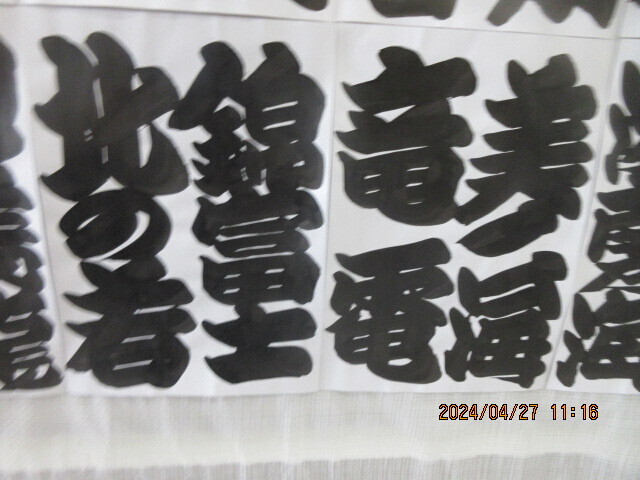 美ノ海
竜電
錦富士
北の若
2024/04/27 11:16